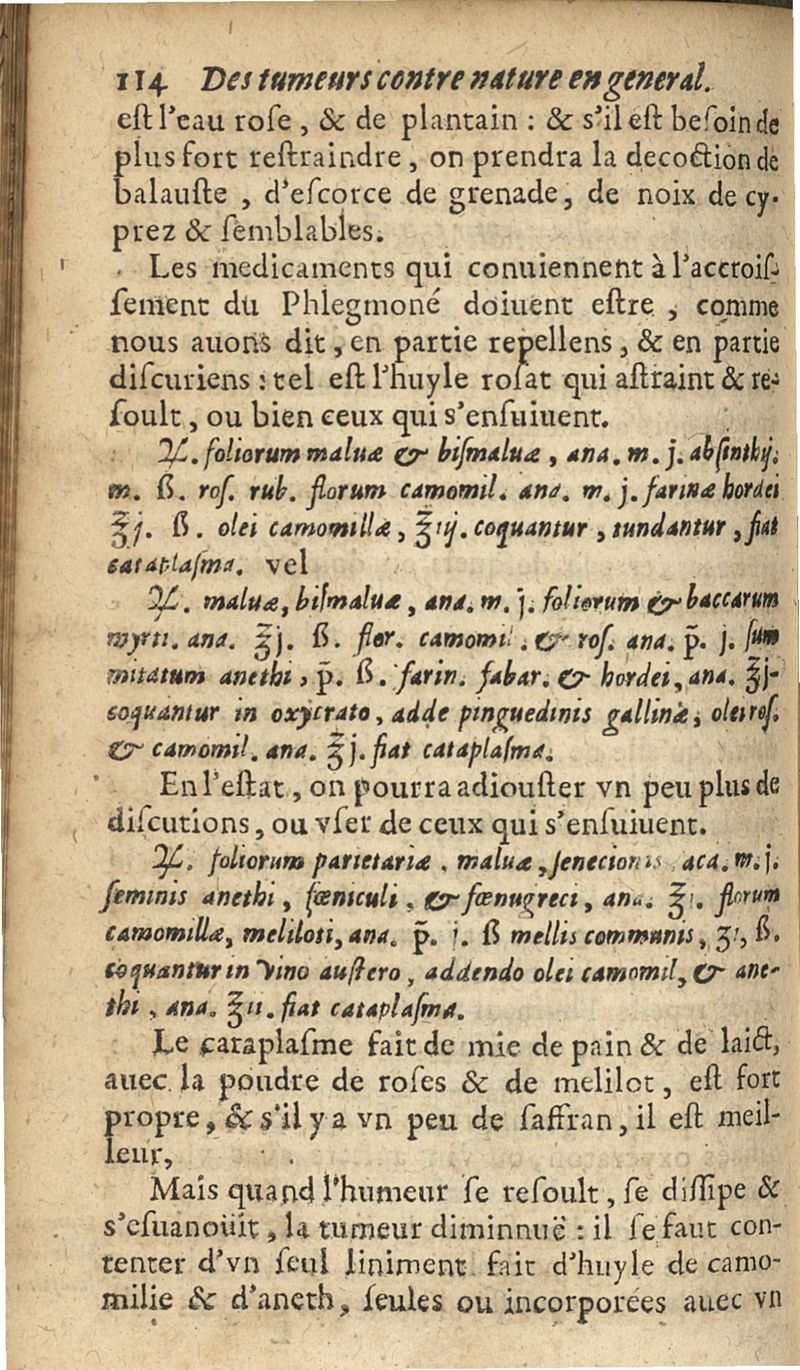 114 Des tumeurs contre nature en general.
est l'eau rose, & de plantain : & s'il est besoin de
plus fort restraindre, on prendra la decoction de
balauste , d'escorce de grenade, de noix de cy-
prez & semblables.
Les medicaments qui conuiennent à l'accrois-
sement du Phlegmoné doiuent estre , comme
nous auons dit, en partie repellens, & en partie
discuriens : tel est l'huyle rosat qui astraint & re-
soult, ou bien ceux qui s'ensuiuent.
℞. foliorum maluæ & bismaluæ, ana. m. j. absinthij.
m. ß. ros. rub. florum camomil. ana. m. j. farinæ hordei
℥j. ß. olei camomillæ, ℥iij. coquantur, tundantur, fiat
cataplasma. vel
℞. maluæ, bismaluæ, ana. m. j. foliorum & baccarum
myrti. ana. ℥j. ß. flor. camomi . & ros. ana. p̄. j. sum
mitatum anethi, p̄. ß. farin. fabar. & hordei, ana. ℥j-
coquantur in oxycrato, adde pinguedinis gallinæ, olei ros.
& camomil. ana. ℥j. fiat cataplasma.
En l'estat, on pourra adiouster vn peu plus de
discutions, ou vser de ceux qui s'ensuiuent.
℞. foliorum parietariæ, maluæ, senecionis aca. m. j.
seminis anethi, fœniculi, & fœnugreci, ana. ℥j. florum
camomillæ, meliloti, ana. p̄. j. ß mellis communis, ʒj, ß.
coquantur in vino austero, addendo olei camomil, & ane-
thi, ana. ℥ii. fiat cataplasma.
Le cataplasme fait de mie de pain & de laict,
auec la poudre de roses & de melilot, est fort
propre, & s'il y a vn peu de saffran, il est meil-
leur,
Mais quand l'humeur se resoult, se dissipe &
s'esuanoüit, la tumeur diminnuë : il se faut con-
tenter d'vn seul liniment fait d'huyle de camo-
milie & d'aneth, seules ou incorporées auec vn